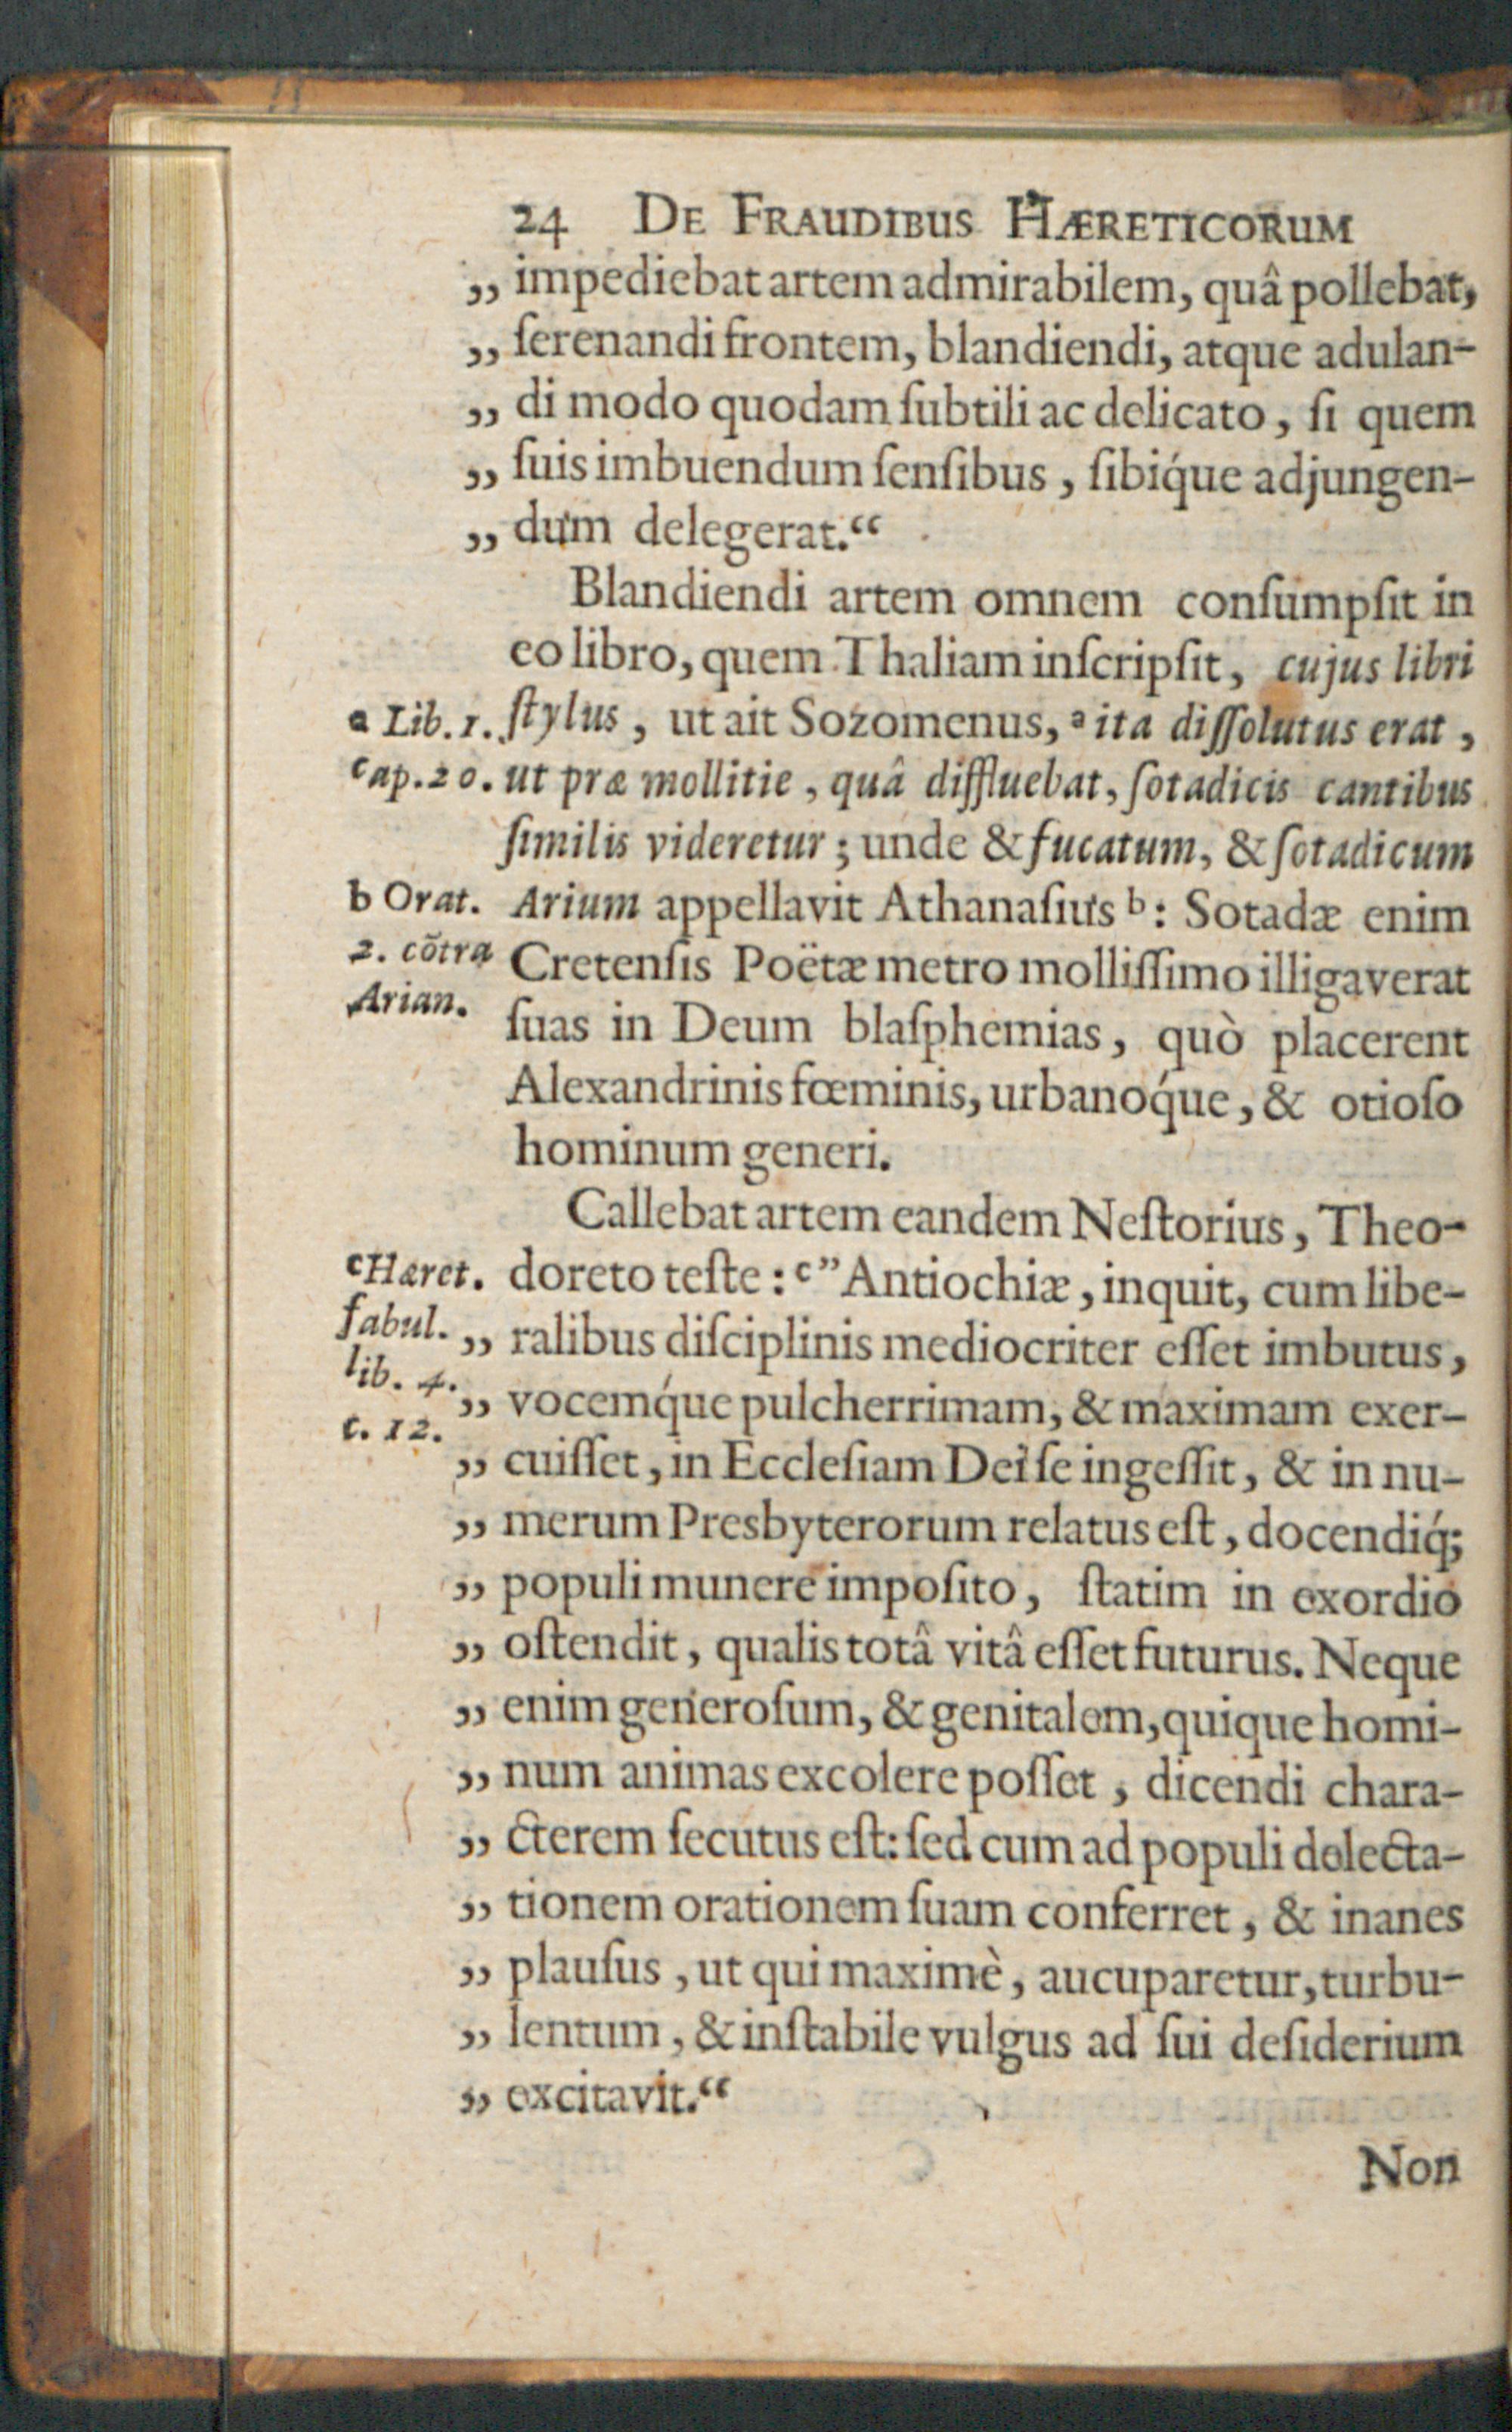 24 DE FRAUDIBUS HÆRETICORUM
„ impediebat artem admirabilem, quâ pollebat,
„ ſerenandi frontem, blandiendi, atque adulan-
„ di modo quodam ſubtili ac delicato, ſi quem
„ ſuis imbuendum ſenſibus, ſibiq́ue adjungen-
„ dum delegerat.“
Blandiendi artem omnem conſumpſit in
eo libro, quem Thaliam inſcripſit, cujus libri
a Lib. 1. ſtylus, ut ait Sozomenus, a ita diſſolutus erat,
cap. 20. ut præ mollitie, quâ diffluebat, ſotadicis cantibus
ſimilis videretur; unde & fucatum, & ſotadicum
b Orat. Arium appellavit Athanaſius b: Sotadæ enim
2. cõtra Cretenſis Poëtæ metro molliſſimo illigaverat
Arian. ſuas in Deum blaſphemias, quò placerent
Alexandrinis fœminis, urbanoq́ue, & otioſo
hominum generi.
Callebat artem eandem Neſtorius, Theo-
c Hæret. doreto teſte: c” Antiochiæ, inquit, cum libe-
fabul. „ ralibus diſciplinis mediocriter eſſet imbutus,
lib. 4. „ vocemq́ue pulcherrimam, & maximam exer-
c. 12. „ cuiſſet, in Eccleſiam Dei ſe ingeſſit, & in nu-
„ merum Presbyterorum relatus eſt, docendiq́;
„ populi munere impoſito, ſtatim in exordio
„ oſtendit, qualis totâ vitâ eſſet futurus. Neque
„ enim generoſum, & genitalem, quique homi-
„ num animas excolere poſſet, dicendi chara-
„ cterem ſecutus eſt: ſed cum ad populi delecta-
„ tionem orationem ſuam conferret, & inanes
„ plauſus, ut qui maximè, aucuparetur, turbu-
„ lentum, & inſtabile vulgus ad ſui deſiderium
„ excitavit.“
Non